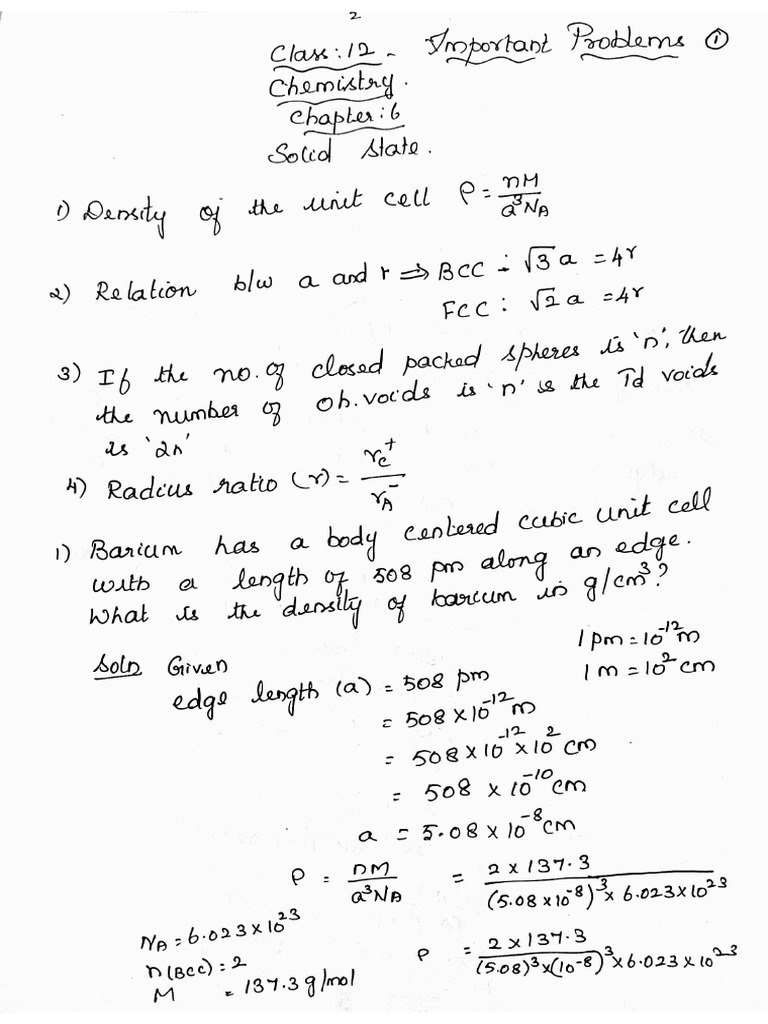 2
Class:12 - Important Problems ①
Chemistry.
Chapter:6
Solid State.
1) Density of the unit cell ρ = nM / a³NA
2) Relation b/w a and r ⇒ BCC : √3 a = 4r
FCC : √2 a = 4r
3) If the no. of closed packed spheres is 'n', then
the number of Oh.voids is 'n' is the Td voids
is '2n'
4) Radius ratio (r) = rc⁺ / rA⁻
1) Barium has a body centered cubic unit cell
with a length of 508 pm along an edge.
What is the density of barium in g/cm³?
Soln Given
1 pm = 10⁻¹² m
1 m = 10² cm
edge length (a) = 508 pm
= 508 × 10⁻¹² m
= 508 × 10⁻¹² × 10² cm
= 508 × 10⁻¹⁰ cm
a = 5.08 × 10⁻⁸ cm
ρ = nM / a³NA = 2 × 137.3 / (5.08 × 10⁻⁸)³ × 6.023 × 10²³
NA = 6.023 × 10²³
n(BCC) = 2
M = 137.3 g/mol
ρ = 2 × 137.3 / (5.08)³ × (10⁻⁸)³ × 6.023 × 10²³